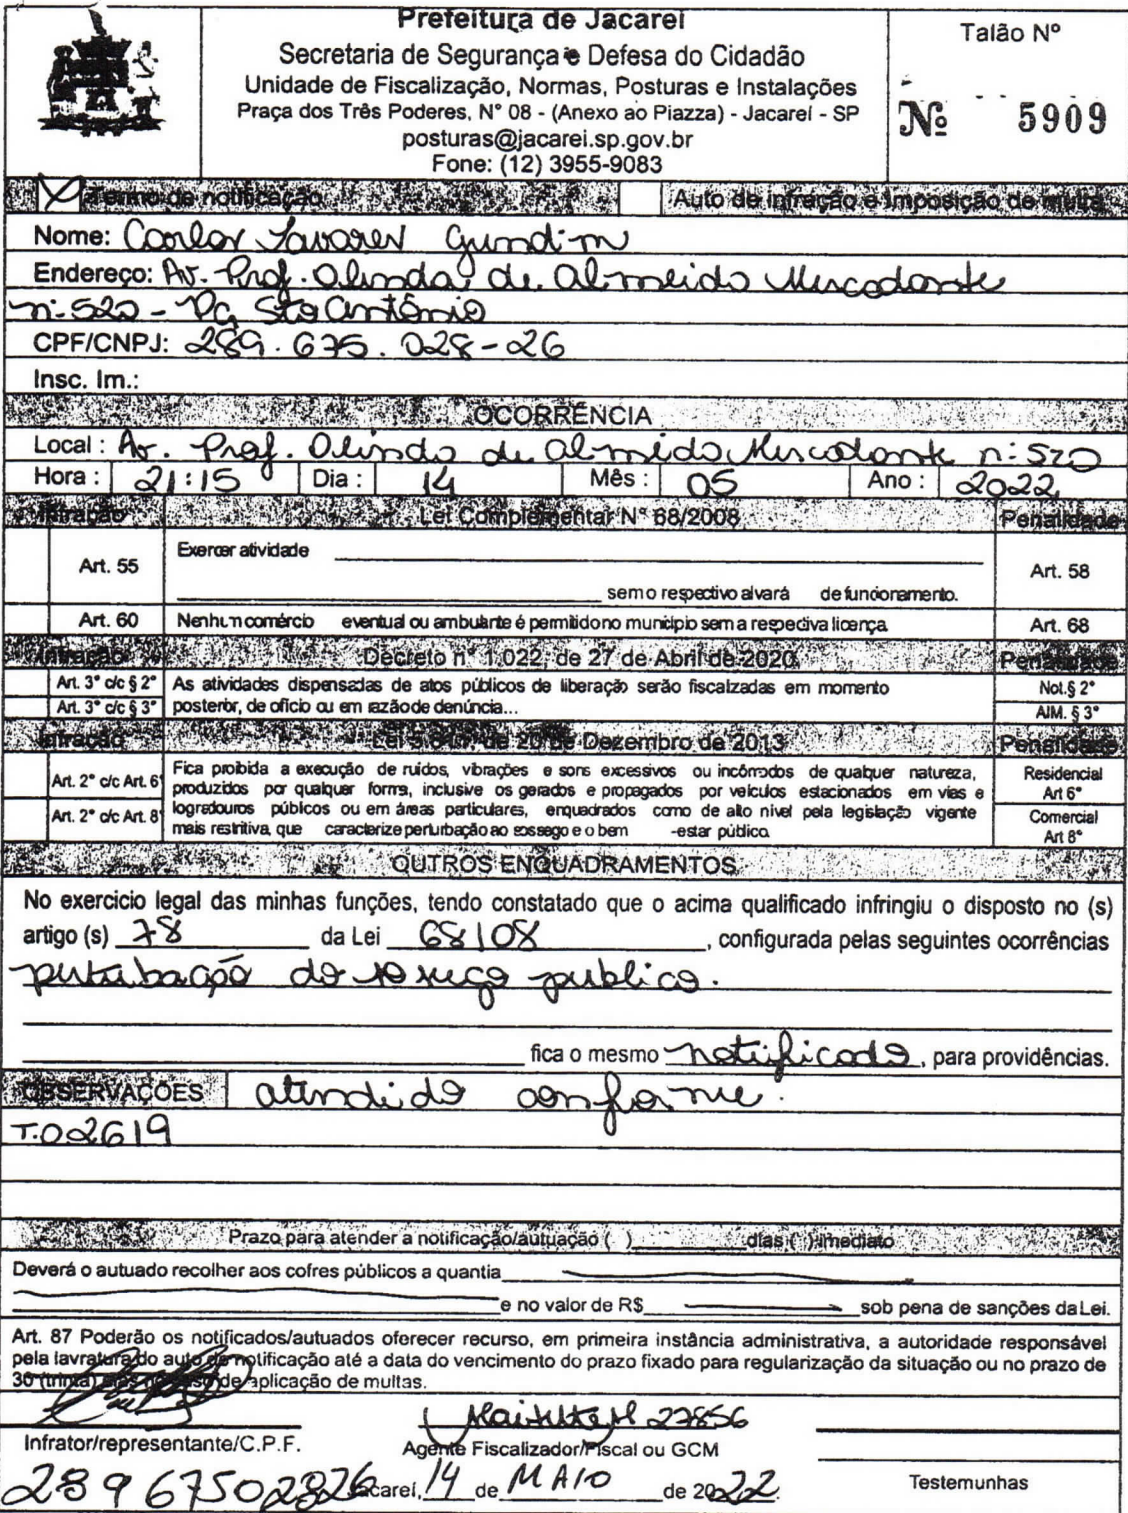 Prefeitura de Jacareí
Secretaria de Segurança e Defesa do Cidadão
Unidade de Fiscalização, Normas, Posturas e Instalações
Praça dos Três Poderes, N° 08 - (Anexo ao Piazza) - Jacareí - SP
posturas@jacarei.sp.gov.br
Fone: (12) 3955-9083
Talão Nº
Nº 5909
X Termo de notificação
Auto de infração e Imposição de multa
Nome: Carlos Tavares Gundim
Endereço: Av. Prof. Olinda de Almeida Mercadante
n: 520 - Pq Sto Antônio
CPF/CNPJ: 289.675.028-26
Insc. Im.:
OCORRÊNCIA
Local : Av. Prof. Olinda de Almeida Mercadante n: 520
Hora : 21:15 Dia : 14 Mês : 05 Ano : 2022
Infração Lei Complementar N° 68/2008 Penalidade
Art. 55 Exercer atividade
sem o respectivo alvará de funcionamento. Art. 58
Art. 60 Nenhum comércio eventual ou ambulante é permitido no município sem a respectiva licença Art. 68
Infração Decreto n° 1.022, de 27 de Abril de 2020 Penalidade
Art. 3° c/c § 2° As atividades dispensadas de atos públicos de liberação serão fiscalizadas em momento Not.§ 2°
Art. 3° c/c § 3° posterior, de ofício ou em razão de denúncia... AIM. § 3°
Infração Lei de 20 de Dezembro de 2013 Penalidade
Art. 2° c/c Art. 6° Fica proibida a execução de ruídos, vibrações e sons excessivos ou incômodos de qualquer natureza, Residencial
produzidos por qualquer forma, inclusive os gerados e propagados por veículos estacionados em vias e Art 6°
Art. 2° c/c Art. 8° logradouros públicos ou em áreas particulares, enquadrados como de alto nível pela legislação vigente Comercial
mais restritiva, que caracterize perturbação ao sossego e o bem -estar público. Art 8°
OUTROS ENQUADRAMENTOS
No exercicio legal das minhas funções, tendo constatado que o acima qualificado infringiu o disposto no (s)
artigo (s) 78 da Lei 68/08, configurada pelas seguintes ocorrências
perturbação do sossego publico.
fica o mesmo notificado, para providências.
OBSERVAÇÕES atendido conforme.
T.02619
Prazo para atender a notificação/autuação ( ) dias ( ) imediato
Deverá o autuado recolher aos cofres públicos a quantia
e no valor de R$ sob pena de sanções da Lei.
Art. 87 Poderão os notificados/autuados oferecer recurso, em primeira instância administrativa, a autoridade responsável
pela lavratura do auto de notificação até a data do vencimento do prazo fixado para regularização da situação ou no prazo de
30 (trinta) dias no caso de aplicação de multas.
27856
Infrator/representante/C.P.F. Agente Fiscalizador/Fiscal ou GCM
28967502826 Jacareí, 14 de MAIO de 2022.
Testemunhas